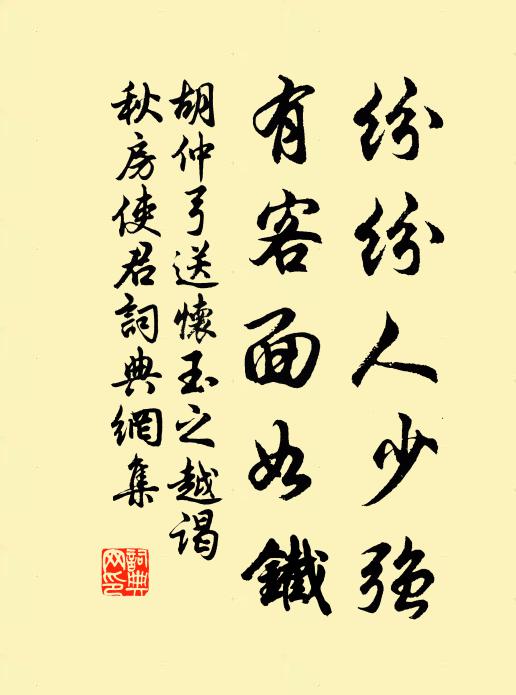 纷纷人少强
有客面如鐵
胡仲弓送懷玉之越谒
秋房使君詞典網集
詞典网印